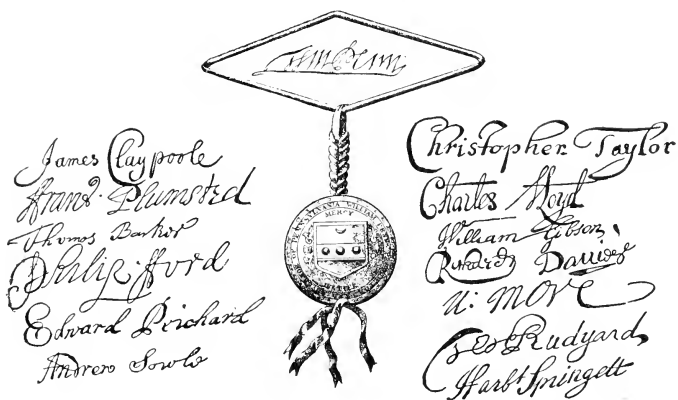 Wm Penn
James Claypoole
Fran: Plumsted
Thomas Barker
Philip fford
Edward Prichard
Andrew Sowle
MERCY
Christopher Taylor
Charles Lloyd
William Gibson
Richard Davies
N: More
Rudyard
Harbt Springett